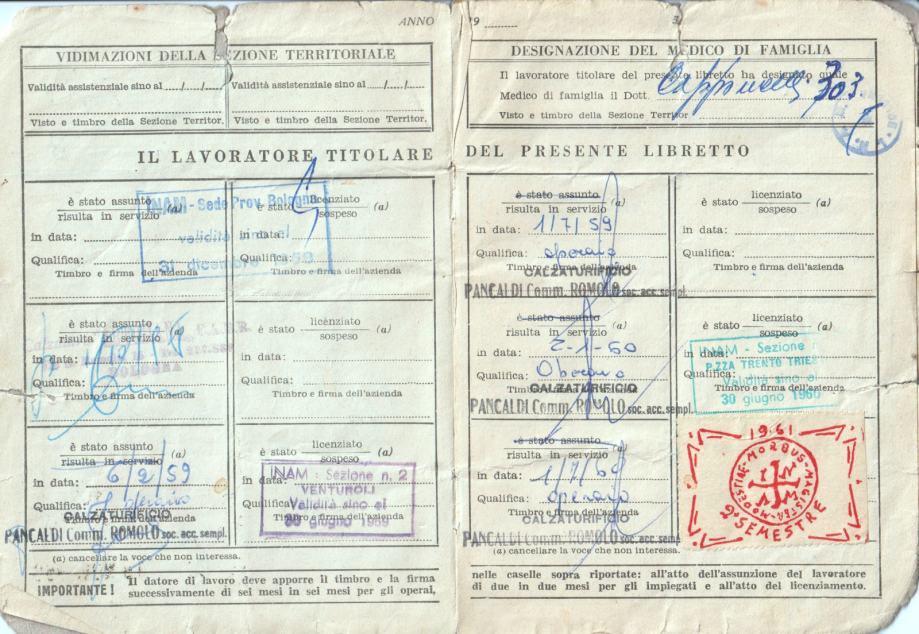 ANNO 19
VIDIMAZIONI DELLA SEZIONE TERRITORIALE
Validità assistenziale sino al ..../..../....
Validità assistenziale sino al ..../..../....
Visto e timbro della Sezione Territor.
Visto e timbro della Sezione Territor.
DESIGNAZIONE DEL MEDICO DI FAMIGLIA
Il lavoratore titolare del presente libretto ha designato quale
Medico di famiglia il Dott. 303
Visto e timbro della Sezione Territor
IL LAVORATORE TITOLARE DEL PRESENTE LIBRETTO
è stato assunto
risulta in servizio (a)
in data:
Qualifica:
Timbro e firma dell'azienda
INAM - Sede Prov. Bologna
validità sino al
31 dicembre 1958
è stato licenziato
sospeso (a)
in data:
Qualifica:
Timbro e firma dell'azienda
è stato assunto
risulta in servizio (a)
in data:
BOLOGNA
Qualifica:
Timbro e firma dell'azienda
è stato licenziato
sospeso (a)
in data:
Qualifica:
Timbro e firma dell'azienda
è stato assunto
risulta in servizio (a)
in data: 6/2/59
Qualifica:
Timbro e firma dell'azienda
CALZATURIFICIO
PANCALDI Comm. ROMOLO soc. acc. sempl.
è stato licenziato
sospeso (a)
in data:
Qualifica:
Timbro e firma dell'azienda
INAM - Sezione n. 2
VENTUROLI
Validità sino al
30 giugno 1959
(a) cancellare la voce che non interessa.
è stato assunto
risulta in servizio (a)
in data: 1/7/59
Qualifica: operaio
Timbro e firma dell'azienda
CALZATURIFICIO
PANCALDI Comm. ROMOLO soc. acc. sempl.
è stato licenziato
sospeso (a)
in data:
Qualifica:
Timbro e firma dell'azienda
è stato assunto
risulta in servizio (a)
in data: 2-1-60
Qualifica: Operaio
Timbro e firma dell'azienda
CALZATURIFICIO
PANCALDI Comm. ROMOLO soc. acc. sempl.
è stato licenziato
sospeso (a)
in data:
Qualifica:
Timbro e firma dell'azienda
INAM - Sezione
P.ZZA TRENTO TRIES
Validità sino al
30 giugno 1960
è stato assunto
risulta in servizio (a)
in data: 1/7/60
Qualifica: operaio
Timbro e firma dell'azienda
CALZATURIFICIO
PANCALDI Comm. ROMOLO soc. acc. sempl.
1961
MORBUS MAGISTER
2° SEMESTRE
(a) cancellare la voce che non interessa.
IMPORTANTE! Il datore di lavoro deve apporre il timbro e la firma nelle caselle sopra riportate: all'atto dell'assunzione del lavoratore
successivamente di sei mesi in sei mesi per gli operai, di due in due mesi per gli impiegati e all'atto del licenziamento.